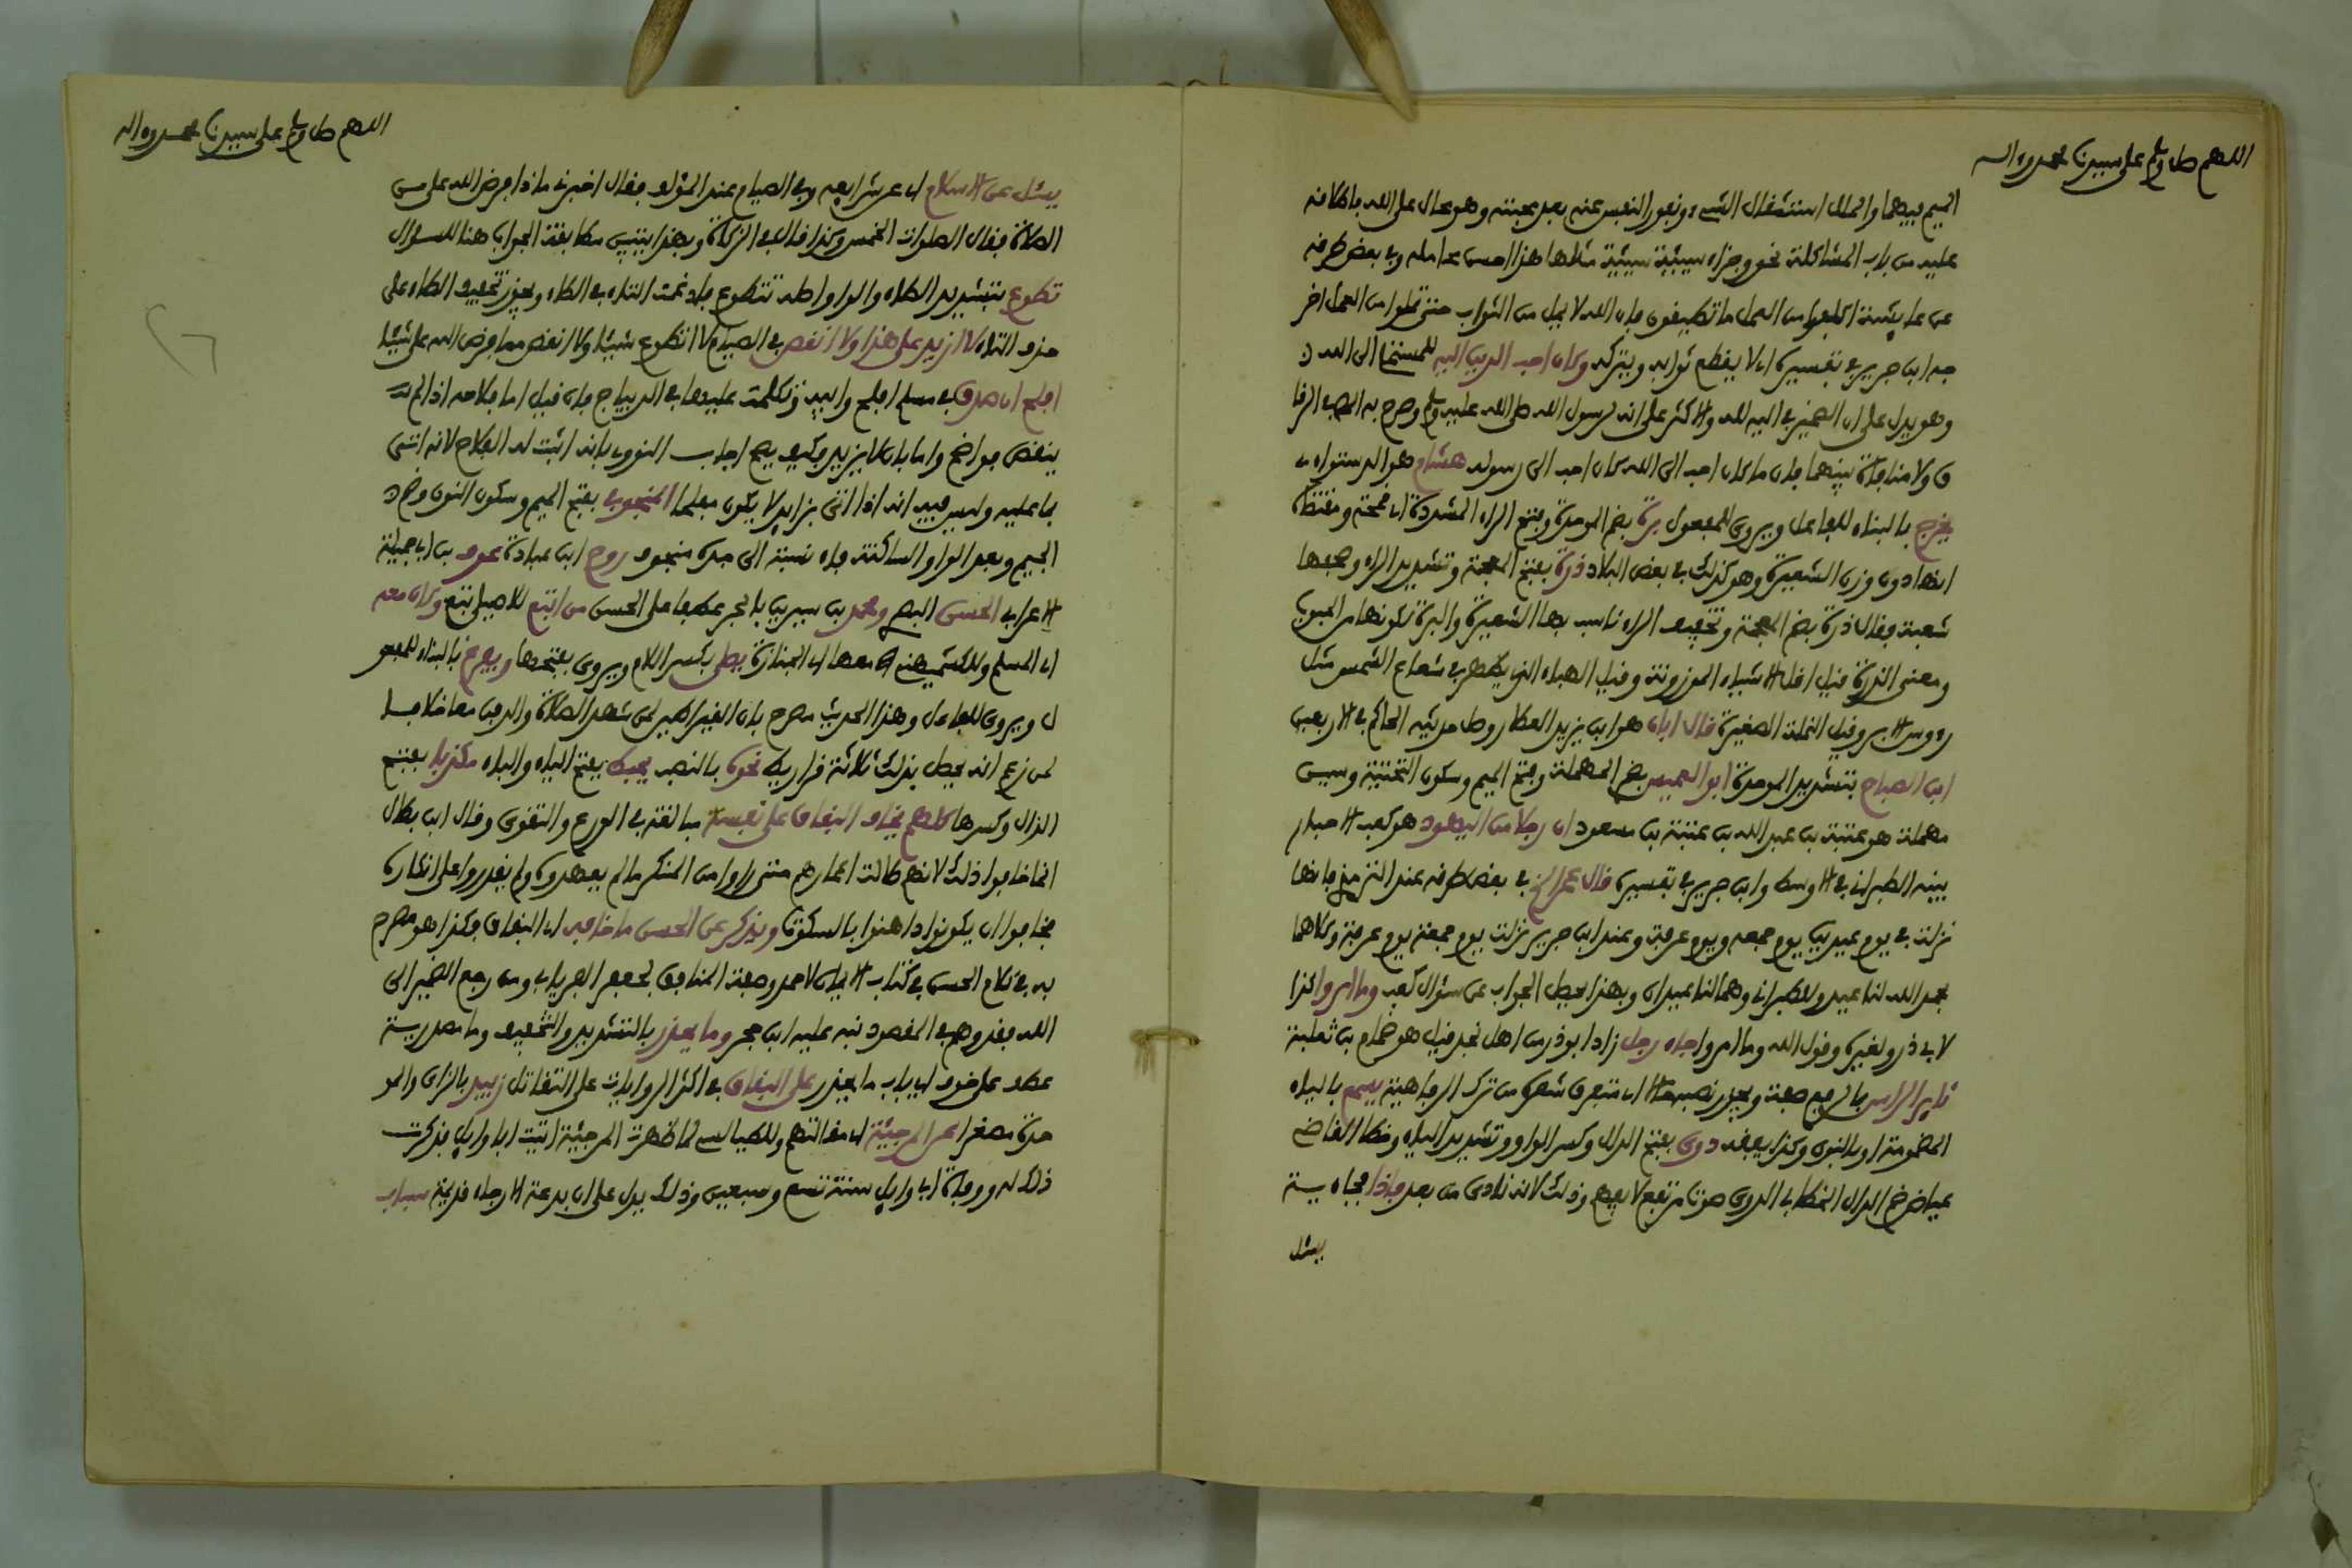 اللهم صل وسلم على سيدنا محمد وءاله
الميم فيهما والملل استثقال الشيء ونفور النفس عنه بعد محبته وهو محال على الله باطلاقه
عليه من باب المشاكلة نحو وجزاء سيئة سيئة مثلها هذا احسن محامله وفي بعض طرقه
عن عايشة اكلفوا من العمل ما تطيقون فان الله لا يمل من الثواب حتى تملوا من العمل اخر
جه ابن جرير في تفسيره اي لا يقطع ثوابه ويتركه وكان احب الدين اليه للمستملي الى الله
وهو يدل على ان الضمير في اليه لله والاكثر على انه لرسول الله صلى الله عليه وسلم وصرح به المص في الرقا
ق ولا منافاة بينهما فان ما كان احب الى الله كان احب الى رسوله هشام هو الدستواءي
يخرج بالبناء للفاعل ويروى للمفعول برة بضم الموحدة وفتح الراء المشددة اي قمحة ومقتضاه
انها دون وزن الشعيرة وهو كذلك في بعض البلاد ذرة بفتح المعجمة وتشديد الراء وصحفها
شعبة فقال ذرة بضم المعجمة وتخفيف الراء ناسب بها الشعيرة والبرة لكونها من الحبوب
ومعنى الذرة قيل اقل الاشياء الموزونة وقيل الهباء الذي يظهر في شعاع الشمس مثل
رءوس الابر وقيل النملة الصغيرة قال ابان هو ابن يزيد العطار وصل حديثه الحاكم في الاربعين
ابن الصباح بتشديد الموحدة ابو العميس بضم المهملة وفتح الميم وسكون التحتية وسين
مهملة هو عتبة بن عبد الله بن عتبة بن مسعود ان رجلا من اليهود هو كعب الاحبار
بينه الطبراني في الاوسط وابن جرير في تفسيره قال عمر الخ في بعض طرقه عند الترمذي فانها
نزلت في يوم عيدين يوم جمعه ويوم عرفة وعند ابن جرير نزلت يوم جمعة يوم عرفة وكلاهما
بحمد الله لنا عيد وللطبراني وهما لنا عيدان وبهذا يحصل الجواب عن سؤال كعب وما امروا كذا
لابي ذر ولغيره وقول الله وما امروا جاء رجل زاد ابو ذر من اهل نجد قيل هو ضمام بن ثعلبة
ثاير الراس بالرفع صفة ويجوز نصبه حالا اي متفرق شعره من ترك الرفاهية يسمع بالياء
المضمومة او بالنون وكذا يفقه دوي بفتح الدال وكسر الواو وتشديد الياء وخطا القاضي
عياض ضم الدال الخطابي الدوي صوت مرتفع لا يفهم وذلك لانه نادى من بعد فاذا مجاءيه
يسئل
اللهم صل وسلم على سيدنا محمد وءاله
يسئل عن الاسلام اي عن شرايعه وفي الصيام عند المؤلف فقال اخبرني ماذا فرض الله علي من
الصلاة فقال الصلوات الخمس وكذا قال في الزكاة وبهذا يتبين مطابقة الجواب هنا للسؤال
تطوع بتشديد الطاء والواو اصله تتطوع فادغمت التاء في الطاء ويجوز تخفيف الطاء على
حذف التاء لا ازيد على هذا ولا انقص في الصيام لا اتطوع شيئا ولا انقص مما فرض الله علي شيئا
افلح ان صدق في مسلم افلح وابيه وتكلمت عليها في الديباج فان قيل اما فلاحه اذا لم
ينقص فواضح واما بان لا يزيد فكيف يصح اجاب النووي بانه اثبت له الفلاح لانه اتى
بما عليه وليس فيه انه اذا اتى بزايد لا يكون مفلحا المنجوفي بفتح الميم وسكون النون وضم
الجيم وبعد الواو الساكنة فاء نسبة الى جده منجوف روح ابن عبادة عوف بن ابي جميلة
الاعرابي الحسن البصري ومحمد بن سيرين بالجر عطفا على الحسن من اتبع للاصيلي تبع وكان معه
اي المسلم وللكشميهني معها اي الجنازة يصلي بكسر اللام ويروى بفتحها ويفرغ بالبناء للمفعو
ل ويروى للفاعل وهذا الحديث مصرح بان القيراطين لمن شهد الصلاة والدفن معا خلافا
لمن زعم انه يحصل بذلك ثلاثة قراريط نحوه بالنصب يحبط بفتح الياء والباء مكذبا بفتح
الذال وكسرها كلهم يخاف النفاق على نفسه مبالغة في الورع والتقوى وقال ابن بطال
انما خافوا ذلك لانهم طالت اعمارهم حتى راوا من المنكر ما لم يعهدوه ولم يقدروا على انكاره
فخافوا ان يكونوا داهنوا بالسكوت ويذكر عن الحسن ما خافه اي النفاق فكذا هو مصرح
به في كلام الحسن في كتاب الايمان لاحمد وصفة المنافق لجعفر الفريابي ومن رجع الضمير الى
الله فقد وهم في المقصود نبه عليه ابن حجر وما يحذر بالتشديد والتخفيف وما مصدرية
عطف على خوف اي باب ما يحذر على النفاق في اكثر الروايات على التقاتل زبيد بالزاي والمو
حدة مصغرا عن المرجئة اي مقالتهم وللطيالسي لما ظهرت المرجئة اتيت ابا وايل فذكرت
ذلك له ووفاة ابي وايل سنة تسع وسبعين وذلك يدل على ان بدعة الارجاء قديمة سباب